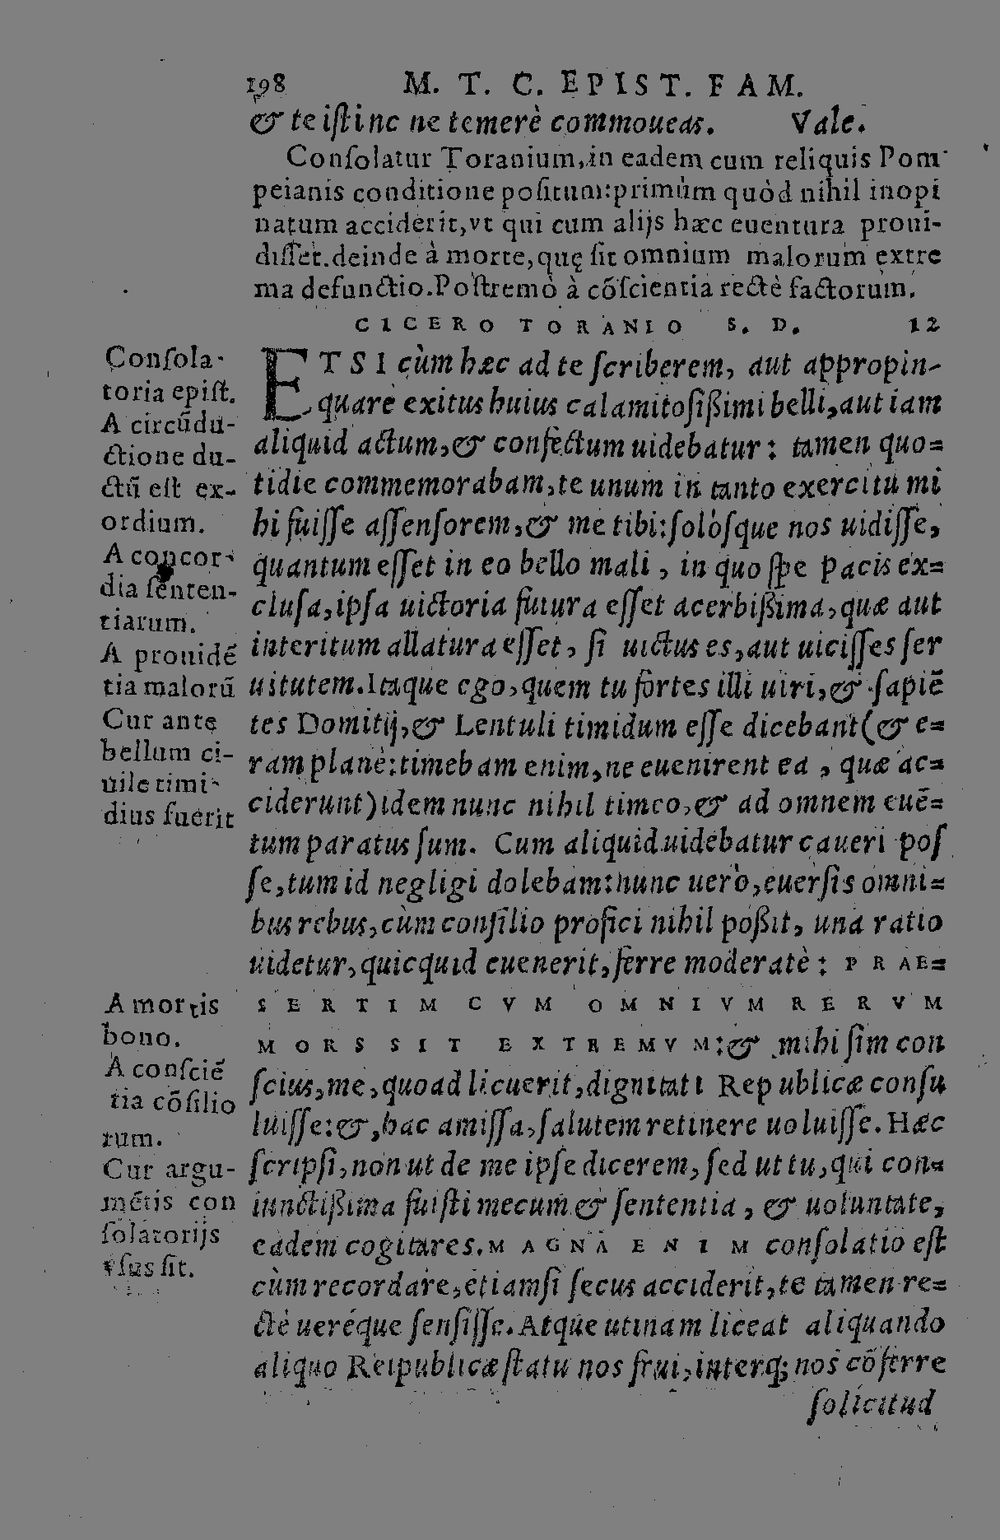 198 M. T. C. EPIST. FAM.
& te iſtinc ne temerè commoueas. Vale.
Conſolatur Toranium, in eadem cum reliquis Pom
peianis conditione poſitum: primùm quòd nihil inopi
natum acciderit, vt qui cum alijs hæc euentura proui-
diſſet. deinde à morte, quę ſit omnium malorum extre
ma defunctio. Poſtremò à cõſcientia rectè factorum.
CICERO TORANIO S. D. 12
ETSI cùm hæc ad te ſcriberem, aut appropin-
quare exitus huius calamitoſiſſimi belli, aut iam
aliquid actum, & confectum uidebatur: tamen quo=
tidie commemorabam, te unum in tanto exercitu mi
hi fuiſſe aſſenſorem, & me tibi: ſolòſque nos uidiſſe,
quantum eſſet in eo bello mali, in quo ſpe pacis ex=
cluſa, ipſa uictoria futura eſſet acerbißima, quæ aut
interitum allatura eſſet, ſi uictus es, aut uiciſſes ſer
uitutem. Itaque ego, quem tu fortes illi uiri, & ſapiẽ
tes Domitij, & Lentuli timidum eſſe dicebant (& e=
ram planè: timebam enim, ne euenirent ea, quæ ac=
ciderunt) idem nunc nihil timeo, & ad omnem euẽ=
tum paratus ſum. Cum aliquid uidebatur caueri poſ
ſe, tum id negligi dolebam: nunc uerò, euerſis omni=
bus rebus, cùm conſilio profici nihil poßit, una ratio
uidetur, quicquid euenerit, ferre moderatè: PRAE=
SERTIM CVM OMNIVM RERVM
MORS SIT EXTREMVM: & mihi ſim con
ſcius, me, quoad licuerit, dignitati Reipublicæ conſu
luiſſe: &, hac amiſſa, ſalutem retinere uoluiſſe. Hæc
ſcripſi, non ut de me ipſe dicerem, ſed ut tu, qui con=
iunctißima fuiſti mecum & ſententia, & uoluntate,
eadem cogitares. MAGNA ENIM conſolatio eſt
cùm recordare, etiamſi ſecus acciderit, te tamen re=
ctè ueréque ſenſiſſe. Atque utinam liceat aliquando
aliquo Reipublicæ ſtatu nos frui, interq; nos cõferre
ſolicitud
Conſola-
toria epiſt.
A circũdu-
ctione du-
ctũ eſt ex-
ordium.
A concor-
dia ſenten-
tiarum.
A prouidẽ
tia malorũ
Cur ante
bellum ci-
uile timi-
dius fuerit
A mortis
bono.
A conſciẽ
tia cõſilio
rum.
Cur argu-
mẽtis con
ſolatorijs
vſus ſit.